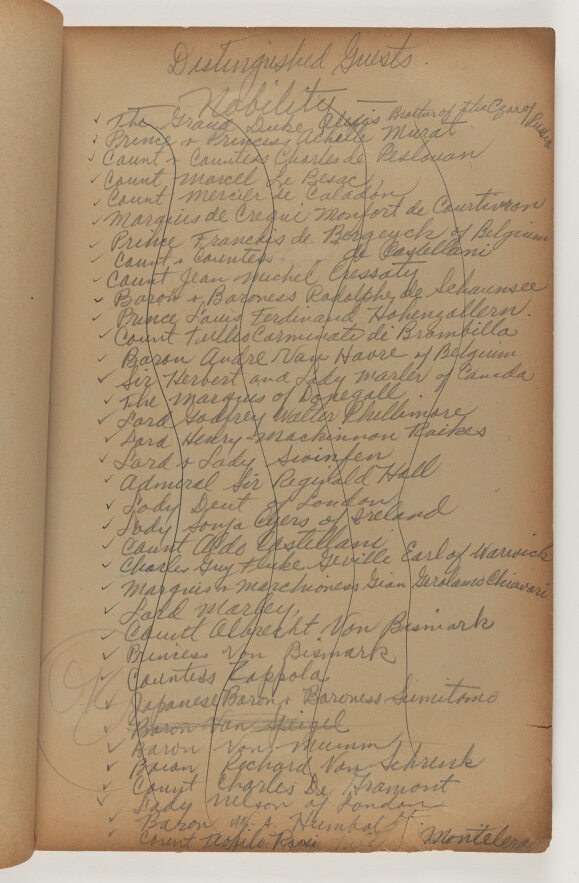 Distinguished Guests.
Nobility —
✓ The Grand Duke Alexis Brother of the Czar of Russia
✓ Prince + Princess Achille Murat
✓ Count + Countess Charles de Peslouan
✓ Count Marcel Le Besac,
✓ Count Mercier de Caladon
✓ Marquis de Crequi Monfort de Courtivron
✓ Prince Francois de Bergeyck of Belgium
✓ Count + Countess de Castellani
✓ Count Jean Michel Cressaty
✓ Baron + Baroness Rodolphe de Schaunsee
✓ Prince Louis Ferdinand Hohenzollern.
✓ Count Tullio Carminati di Brambilla
✓ Baron Andre Van Havre of Belgium
✓ Sir Herbert and Lady Marler of Canada
✓ The Marquis of Donegall.
✓ Lord Godfrey Walter Phillimore
✓ Lord Henry Mackinnon Raikes
✓ Lord + Lady Swinfen
✓ Admiral Sir Reginald Hall
✓ Lady Dent of London
✓ Lady Sonja Ayers of Ireland
✓ Count Aldo Castellani
✓ Charles Guy Fluke Geville Earl of Warwick
✓ Marquis + Marchioness Gian Gerolamo Chiavari
✓ Lord Marley,
✓ Count Albrecht Von Bismark
✓ Princess Von Bismark
✓ Countess Zappola
✓ Japanese Baron + Baroness Sumitomo
✓ Baron Van Speigel
✓ Baron Von Mumm
✓ Baron Richard Von Schrenk
✓ Count Charles De Framont
✓ Lady Nelson of London
✓ Baron M. A. Humbolt
✓ Count Rossi Montelera